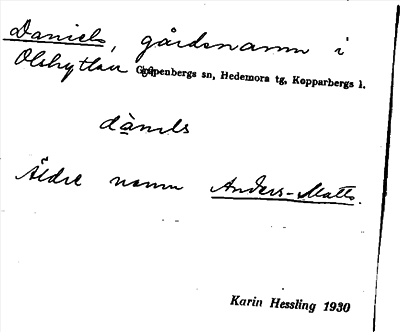 Daniels, gårdsnamn i
Olshyttan Garpenbergs sn, Hedemora tg, Kopparbergs l.
dànɩls
Äldre namn Anders-Matts.
Karin Hessling 1930